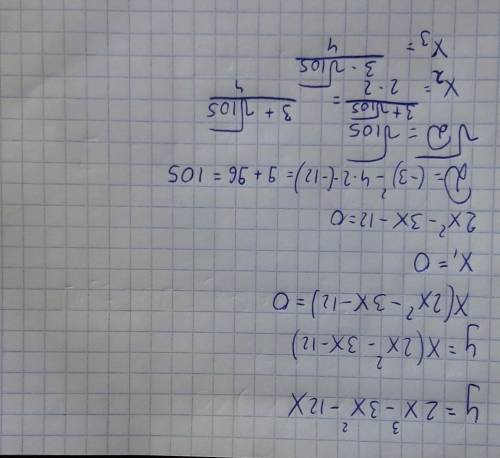 y = 2x³ - 3x² - 12x
y = x(2x² - 3x - 12)
x(2x² - 3x - 12) = 0
x₁ = 0
2x² - 3x - 12 = 0
D = (-3)² - 4·2·(-12) = 9 + 96 = 105
√D = √105
x₂ = (3 + √105)/(2·2) = (3 + √105)/4
x₃ = (3 - √105)/4